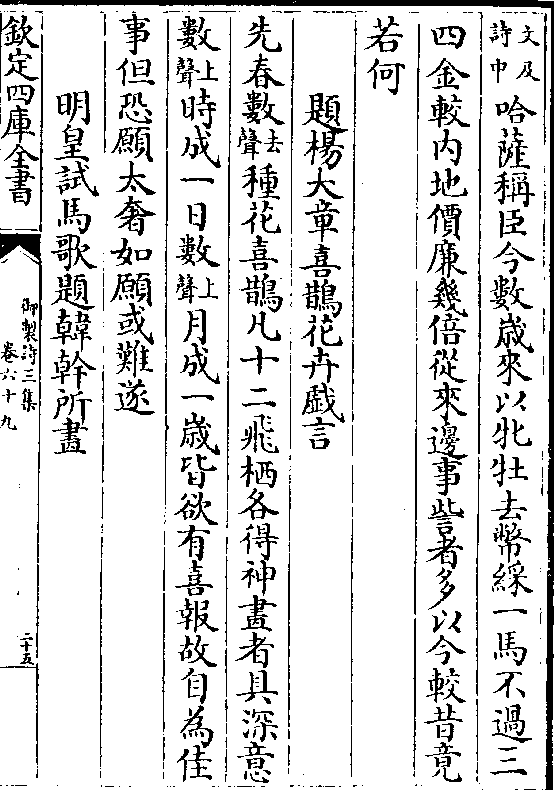 文及詩中哈薩稱臣今數歲來以牝牡去幣綵一馬不過三
四金較内地價廉幾倍從來邊事訾者多以今較昔竟
若何
題楊大章喜鵲花卉戲言
先春數去聲種花喜鵲凡十二飛栖各得神畫者具深意
數上聲時成一日數上聲月成一歲皆欲有喜報故自為佳
事但恐願太奢如願或難遂
明皇試馬歌題韓幹所畫
欽定四庫全書
御製詩三集
卷六十九
二十五